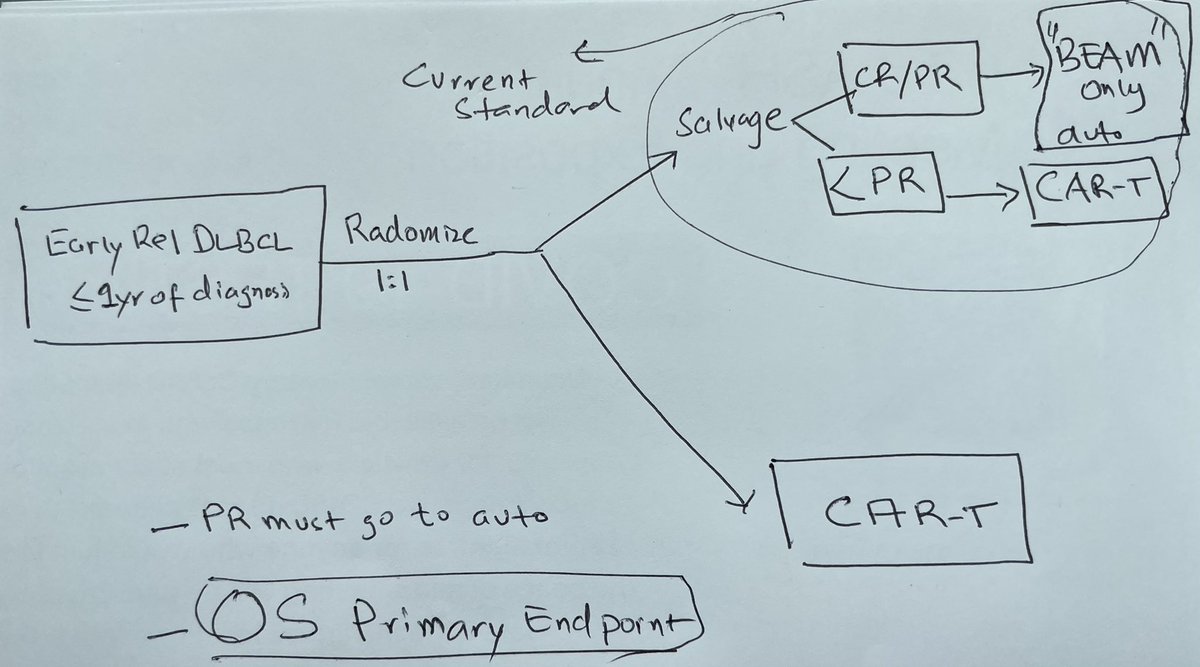 Current
Standard
Salvage
CR/PR
"BEAM"
only
auto
< PR
CAR-T
Early Rel DLBCL
≤ 1yr of diagnosis
Radomize
1:1
CAR-T
– PR must go to auto
– OS Primary Endpoint